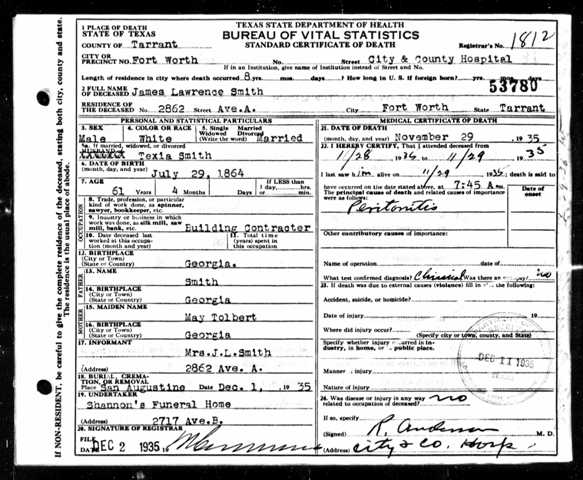 TEXAS STATE DEPARTMENT OF HEALTH
BUREAU OF VITAL STATISTICS
STANDARD CERTIFICATE OF DEATH
Registrar's No. 1812
1 PLACE OF DEATH
STATE OF TEXAS
COUNTY OF Tarrant
CITY OR
PRECINCT NO. Fort Worth No. Street City & County Hospital
If in an Institution, give name of Institution instead of Street and No.
Length of residence in city where death occurred 8 yrs. mos. days? How long in U. S. if foreign born? yrs. mos. days
53780
2 FULL NAME
OF DECEASED James Lawrence Smith
RESIDENCE OF
THE DECEASED No. 2862 Street Ave.A. City Fort Worth State Tarrant
PERSONAL AND STATISTICAL PARTICULARS
3. SEX
Male
4. COLOR OR RACE
White
5. Single Married
Widowed Divorced
(Write the word) Married
5a. If married, widowed, or divorced
HUSBAND
Texia Smith
6. DATE OF BIRTH
(month, day, and year) July 29, 1864
7. AGE
61 Years 4 Months Days
If LESS than
1 day, hrs.
or min.
8. Trade, profession, or particular
kind of work done, as spinner,
sawyer, bookkeeper, etc.
9. Industry or business in which
work was done, as silk mill, saw
mill, bank, etc. Building Contracter
10. Date deceased last
worked at this occupa-
tion (month and year)
11. Total time
(years) spent in
this occupation
12. BIRTHPLACE
(City or Town)
(State or Country) Georgia.
FATHER
13. NAME
Smith
14. BIRTHPLACE
(City or Town)
(State or Country) Georgia
MOTHER
15. MAIDEN NAME
May Tolbert
16. BIRTHPLACE
(City or Town)
(State or Country) Georgia
17. INFORMANT
Mrs.J.L.Smith
(Address) 2862 Ave. A.
18. BURIAL, CREMA-
TION, OR REMOVAL
Place San Augustine Date Dec. 1, 1935
19. UNDERTAKER
Shannon's Funeral Home
(Address) 2717 Ave.B.
20. SIGNATURE OF REGISTRAR
FILE
DEC 2 1935
MEDICAL CERTIFICATE OF DEATH
21. DATE OF DEATH
(month, day, and year) November 29 1935
22. I HEREBY CERTIFY, That I attended deceased from
11/28 1935 to 11/29 1935
I last saw him alive on 11/29 1935; death is said to
have occurred on the date stated above, at 7:45 A.m.
The principal cause of death and related causes of importance
were as follows:
Date of
onset
Peritonitis
Other contributory causes of importance:
Name of operation date of
What test confirmed diagnosis? Clinical Was there an no
23. If death was due to external causes (violence) fill in the following:
Accident, suicide, or homicide?
Date of injury 19
Where did injury occur?
(Specify city or town, county, and State)
Specify whether injury occurred in In-
dustry, in home, or in public place.
Manner injury
Nature of injury
DEC 11 1935
24. Was disease or injury in any way
related to occupation of deceased? no
If so, specify
(Signed) R. Anderson M. D.
(Address) City & Co. Hosp
If NON-RESIDENT, be careful to give the complete residence of the deceased, stating both city, county and state.
The residence is the usual place of abode.